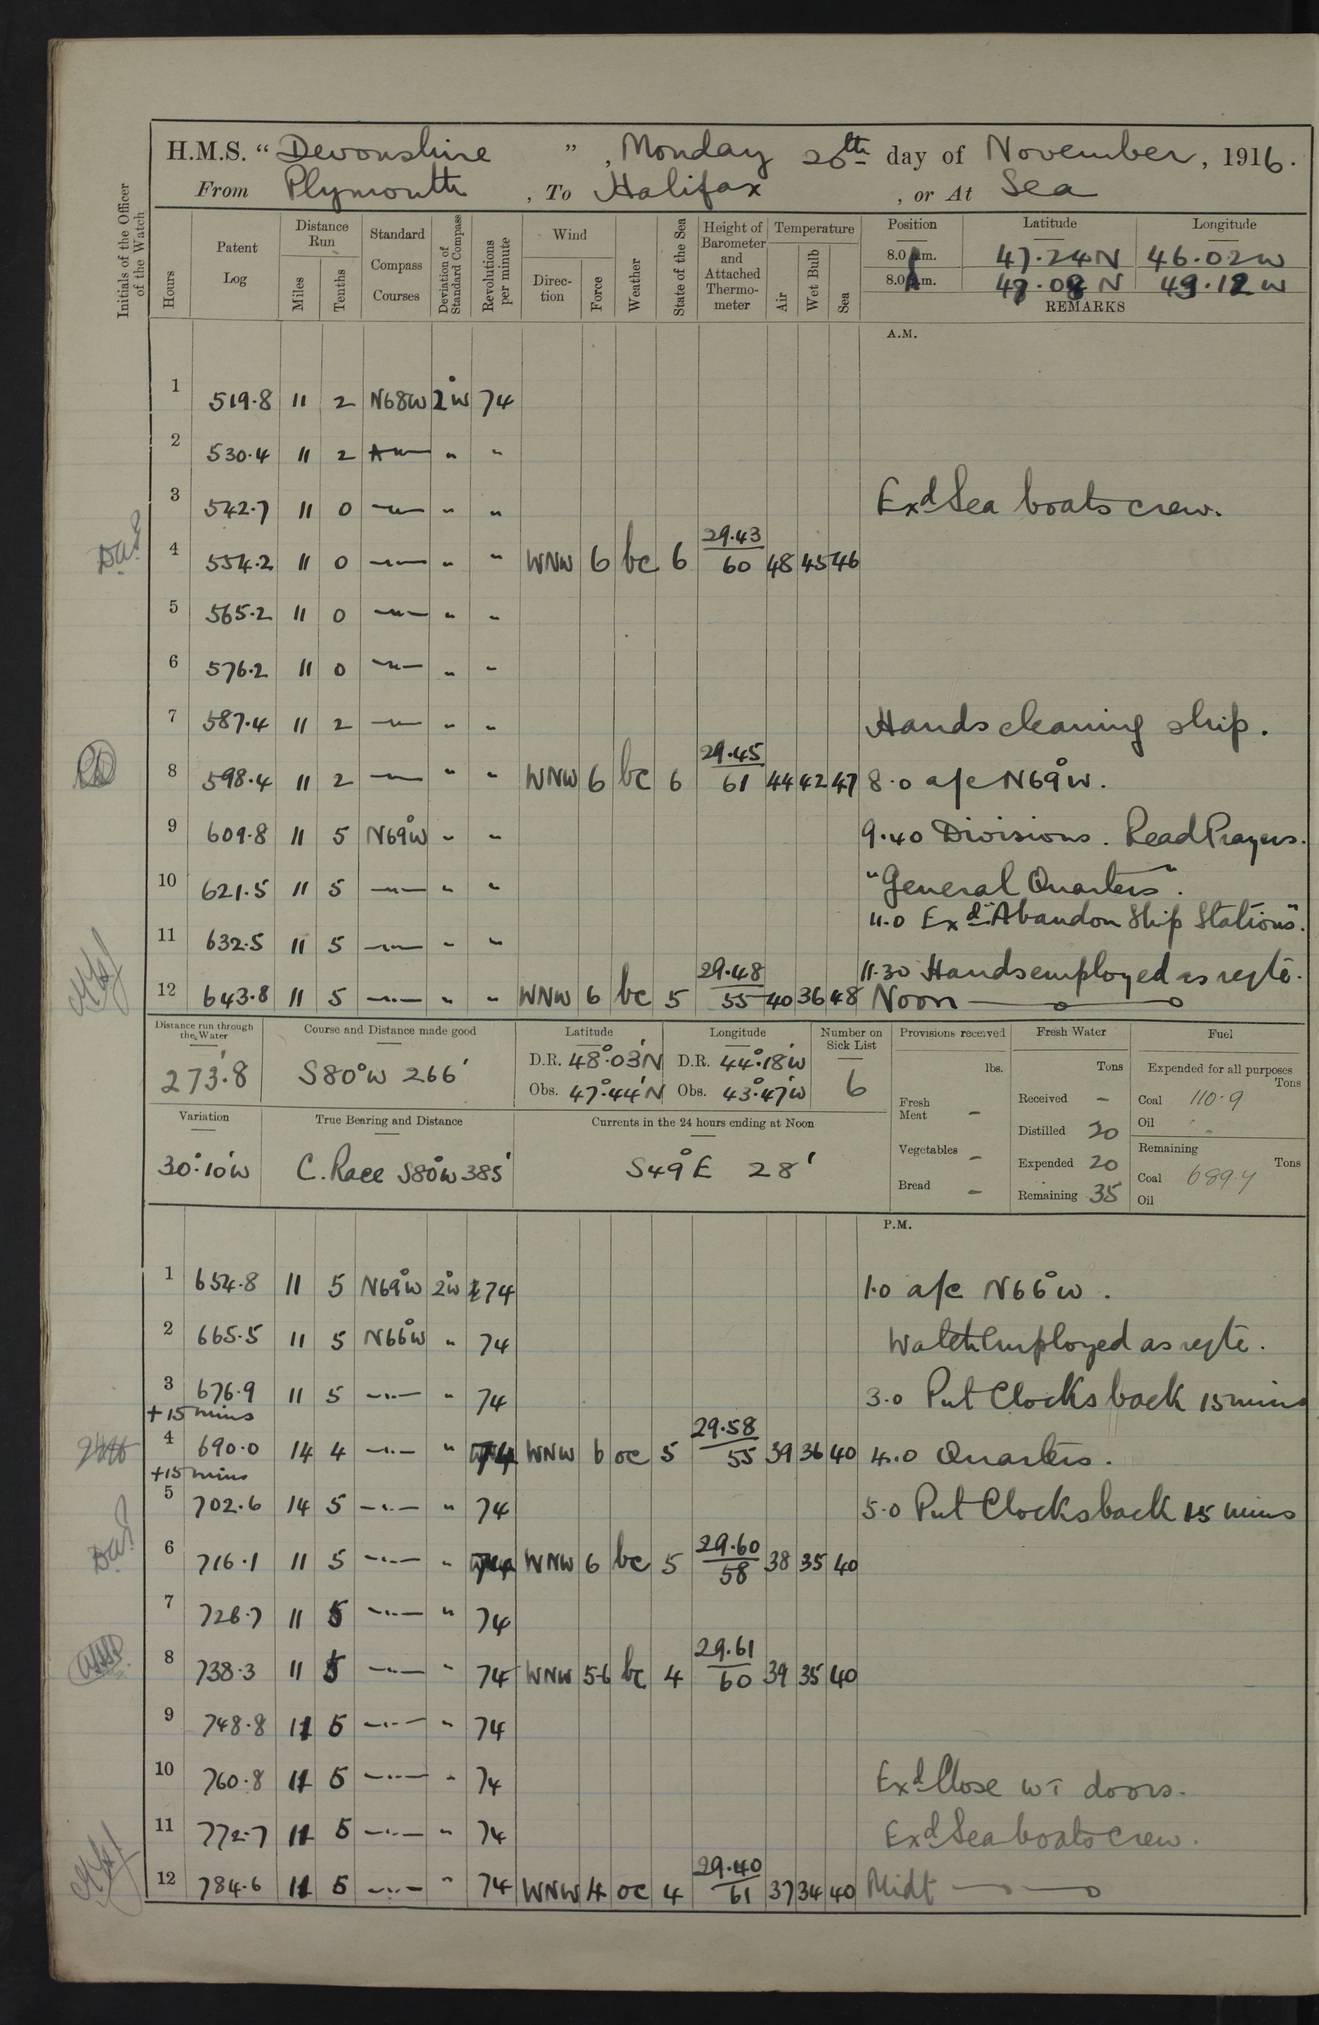 H.M.S. "Devonshire", Monday 20th day of November, 1916.
From Plymouth, To Halifax, or At Sea
Initials of the Officer of the Watch
Hours Patent Log Distance Run Miles Tenths Standard Compass Courses Deviation of Standard Compass Revolutions per minute Wind Direction Force Weather State of the Sea Height of Barometer and Attached Thermometer Temperature Air Wet Bulb Sea Position Latitude Longitude
47.24N 46.02W
REMARKS
A.M.
1 519.8 11 2 N68W 2°W 74
2 530.4 11 2 " "
3 542.7 11 0 —"— " " Exd Sea boats crew.
4 554.2 11 0 —"— " " WNW 6 bc 6 29.43 60 48 45 46
5 565.2 11 0 —"— " "
6 576.2 11 0 —"— " "
7 587.4 11 2 —"— " " Hands cleaning ship.
8 598.4 11 2 —"— " " WNW 6 bc 6 29.45 61 44 42 47 8.0 a/c N69°W.
9 609.8 11 5 N69°W " " 9.40 Divisions. Read Prayers.
10 621.5 11 5 —"— " " "General Quarters".
11.0 Exd "Abandon Ship Stations".
11 632.5 11 5 —"— " "
11.30 Hands employed as reqte.
12 643.8 11 5 —"— " " WNW 6 bc 5 29.48 55 40 36 48 Noon
Distance run through the Water 273'.8
Course and Distance made good S80°W 266'
Latitude D.R. 48°.03'N Obs. 47°.44'N
Longitude D.R. 44°.18'W Obs. 43°.47'W
Number on Sick List 6
Provisions received lbs.
Fresh Meat -
Vegetables -
Bread -
Fresh Water Tons
Received -
Distilled 20
Expended 20
Remaining 35
Fuel
Expended for all purposes Tons
Coal 110.9
Oil -
Remaining Tons
Coal
Oil
Variation 30°.10'W
True Bearing and Distance C. Race S80°W 385'
Currents in the 24 hours ending at Noon S49°E 28'
P.M.
1 654.8 11 5 N69°W 2°W 74 1.0 a/c N66°W.
2 665.5 11 5 N66°W " 74 Watch Employed as reqte.
3 676.9 11 5 —"— " 74 3.0 Put Clocks back 15 mins
+15 mins
4 690.0 14 4 —"— " 74 WNW 6 oc 5 29.58 55 39 36 40 4.0 Quarters.
+15 mins
5 702.6 14 5 —"— " 74 5.0 Put Clocks back 15 mins
6 716.1 11 5 —"— " 74 WNW 6 bc 5 29.60 58 38 35 40
7 726.7 11 5 —"— " 74
8 738.3 11 5 —"— " 74 WNW 5-6 bc 4 29.61 60 39 35 40
9 748.8 11 5 —"— " 74
10 760.8 11 5 —"— " 74 Exd Close WT doors.
11 772.7 11 5 —"— " 74 Exd Sea boats crew.
12 784.6 11 5 —"— " 74 WNW 4 oc 4 29.40 61 37 34 40 Midt